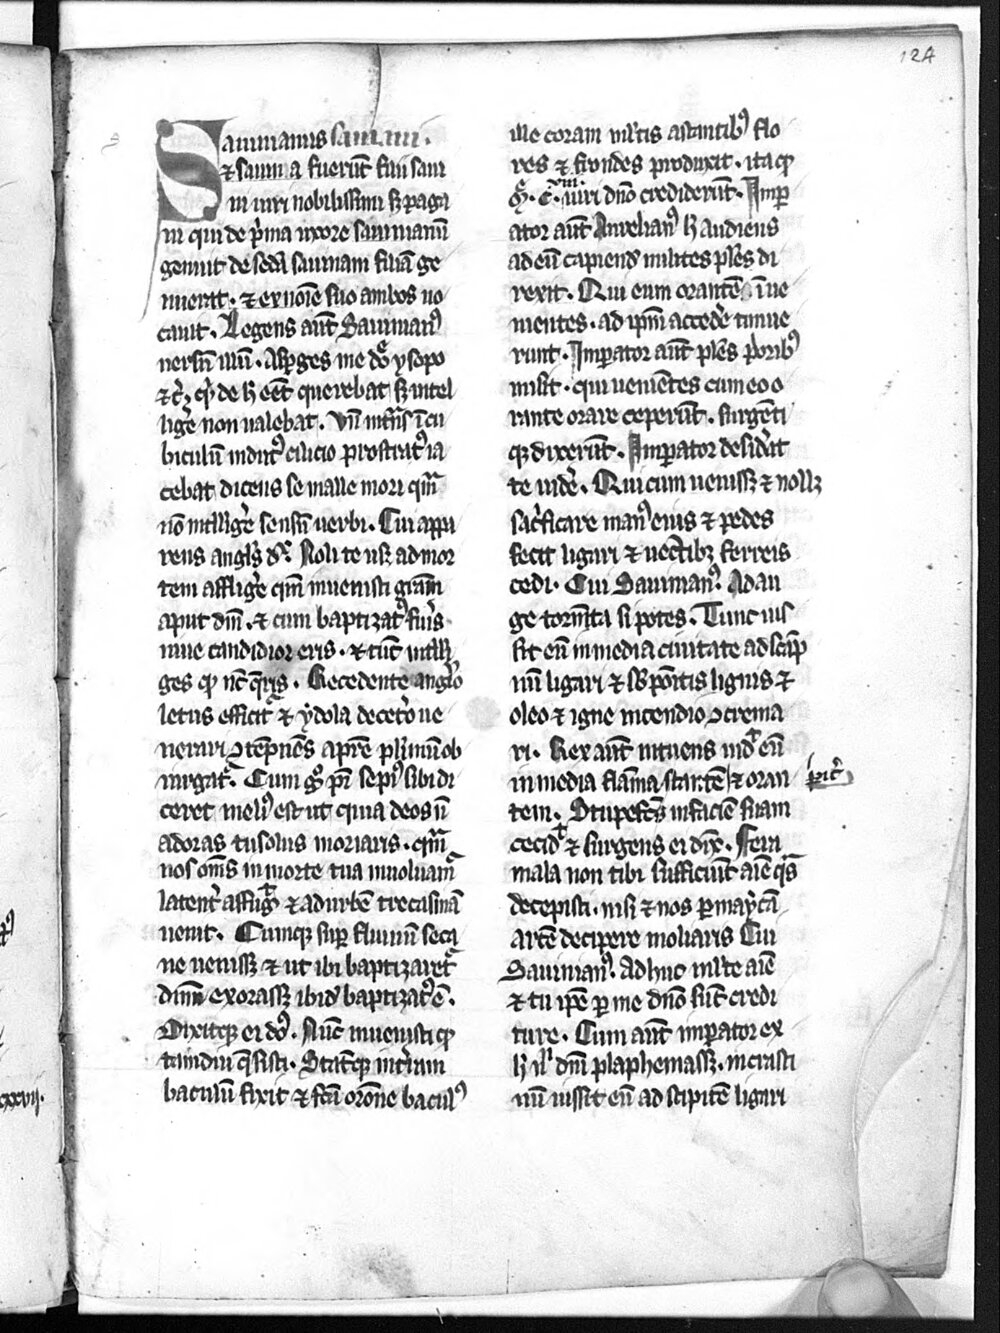 124
Sauinianus sauini.
⁊ sauina fuerūt filii saui
ni uiri nobilissimi sꝫ paga
ni qui de pͥma uxore sauinianū
genuit de scd̄a sauinam filiā ge
nuerat. ⁊ ex noīe suo ambos uo
cauit. Legens aūt Sauinianꝰ
uersū illū. Asꝑges me dn̄e ysopo
⁊c̄ꝫ qͥd de h̄ eēt querebat sꝫ intel
lige᷑ non ualebat. Vn̄ intrās ī cu
biculū indutꝰ cilicio prostratꝰ ia
cebat dicens se malle mori qm̄
nō intllige᷑ sensū uerbi. Cui appa
rens angl̓s dr̄. Noli te usqꝫ ad mor
tem afflige᷑ qm̄ inuenisti grām
aput dm̄. ⁊ cum baptizatꝰ fuīs
niue candidior eris. ⁊ tūc intlli
ges qd̓ nc̄ q̄ris. Recedente anglo
letus efficit᷑ ⁊ ydola decet᷑o ue
nerari ꝯtēpnēs a pr̄e plimū ob
iurgat᷑. Cum gͦ pr̄ sepiꝰ sibi di
ceret meliꝰ est ut quia deos nō
adoras tu solus moriaris. qm̄
nos om̄s in morte tua inuoluam᷑
latent᷑ affugit ⁊ ad urbē trecasinā
uenit. Cumqꝫ suꝑ fluuiū seca
ne uenissꝫ ⁊ ut ibi baptizaret᷑
dnm̄ exorassꝫ ibid̓ baptizatꝰ ē.
Dixitqꝫ ei dn̄s. Nūc inuenisti qd̓
tamdiu q̄sisti. Statīqꝫ int᷑ram
baculū fixit ⁊ fc̄a orōne baculꝰ
ille coram ml̓tis astantibꝰ flo
res ⁊ frondes produxit. ita qd̓
uiri dn̄o crediderūt. Imꝑ
ator aūt Aurelianꝰ h̄ audiens
ad eū capiend̓ milites pl̓es di
rexit. Qui eum orantē īue
nientes. ad ip̄m accede᷑ timue
runt. Imꝑator aūt pl̓es p̓oribꝰ
misit. qui uenientes cum eo o
rante orare ceperūt. surgēti
qꝫ dixerūt. Imꝑator desid᷑at
te uide᷑. Qui cum uenissꝫ ⁊ nollꝫ
sac᷑ficare manꝰ eius ⁊ pedes
fecit ligari ⁊ uectibꝫ ferreis
cedi. Cui Sauinianꝰ. Ad au
ge tormīta si potes. Tunc ius
sit eū in media ciuitate ad scāp
nū ligari ⁊ sb̓ pōitis lignis ⁊
oleo ⁊ igne incendio ꝯcrema
ri. Rex aūt intuens uid̓ eū
in media flāma stantē ⁊ oran
tem. Stupefcs̄ in faciē suam
cecid̓ ⁊ surgens ei dix̄. Fera
mala non tibi sufficiūt aīe qͣs
decepisti. nisi ⁊ nos ꝑ magycā
artē decipere moliaris Cui
Sauinianꝰ. Ad huc ml̓te aīe
⁊ tu ip̄e ꝑ me dn̄o sūt credi
ture. Cum aūt imꝑator ex
h̄ dm̄ plaphemassꝫ. in crasti
nū iussit eū ad stipitē ligari
xxvij.